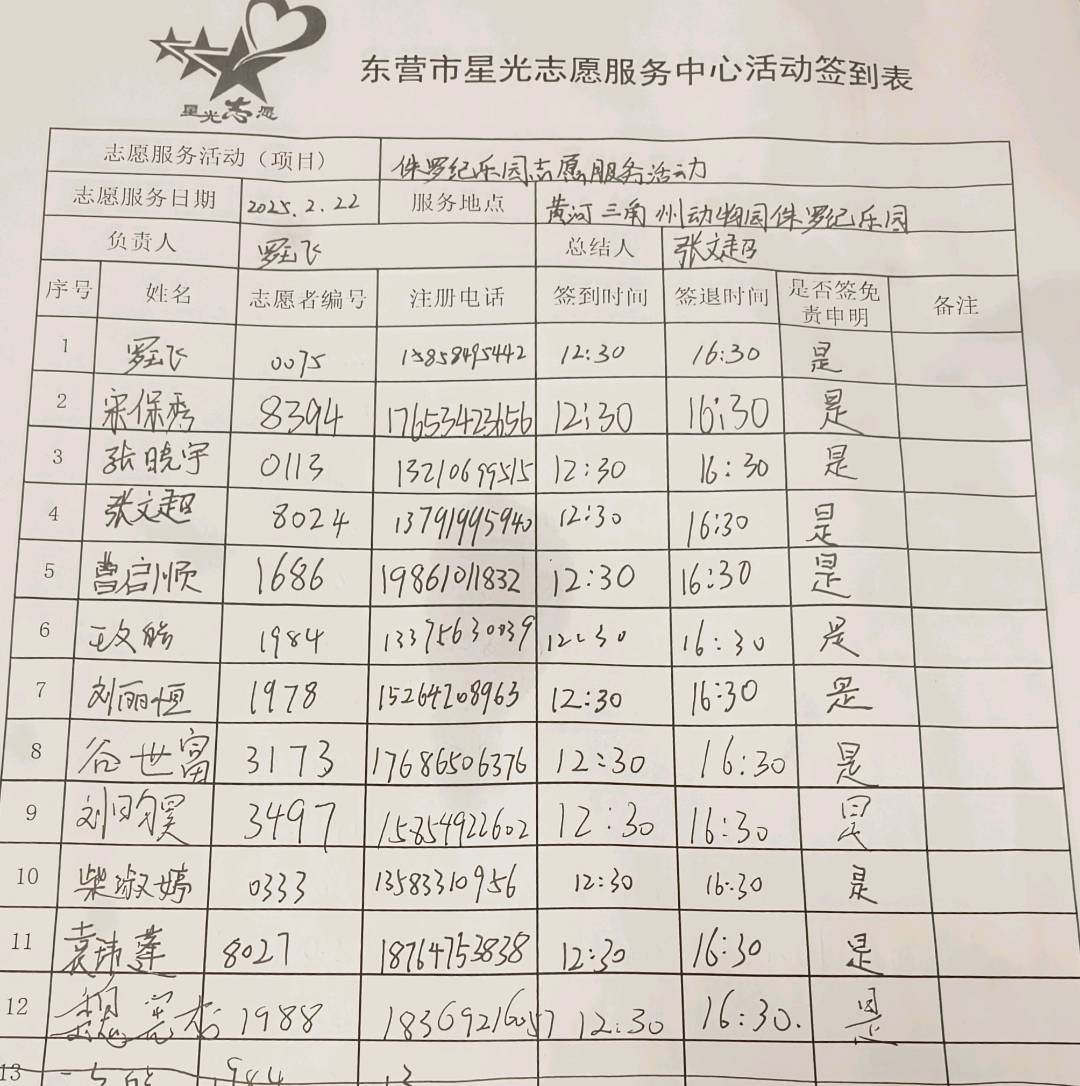 星光志愿
东营市星光志愿服务中心活动签到表
志愿服务活动（项目） 侏罗纪乐园志愿服务活动
志愿服务日期 2025.2.22 服务地点 黄河三角州动物园侏罗纪乐园
负责人 罗玉飞 总结人 张文超
序号 姓名 志愿者编号 注册电话 签到时间 签退时间 是否签免责申明 备注
1 罗玉飞 0075 15858495442 12:30 16:30 是
2 宋保秀 8394 17653423656 12:30 16:30 是
3 张晓宇 0113 13210699515 12:30 16:30 是
4 张文超 8024 13791995940 12:30 16:30 是
5 曹启顺 1686 19861011832 12:30 16:30 是
6 1984 13375630039 12:30 16:30 是
7 刘丽恒 1978 15264208963 12:30 16:30 是
8 谷世富 3173 17686506376 12:30 16:30 是
9 3497 15854922602 12:30 16:30 是
10 柴淑婷 0333 13583310956 12:30 16:30 是
11 袁玮蓬 8027 18764753838 12:30 16:30 是
12 1988 18369216057 12:30 16:30. 是
13